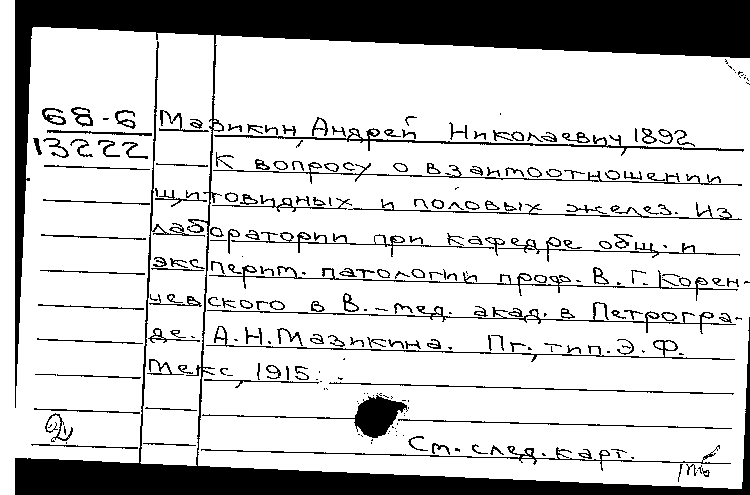 68-6 Мазикин, Андрей Николаевич, 1892
13222 К вопросу о взаимоотношении
щитовидных и половых желез. Из
лаборатории при кафедре общ. и
эксперим. патологии проф. В. Г. Корен-
чевского в В.-мед. акад. в Петрогра-
де. А.Н. Мазикина. Пг., тип. Э. Ф.
Мекс, 1915.
См. след. карт.